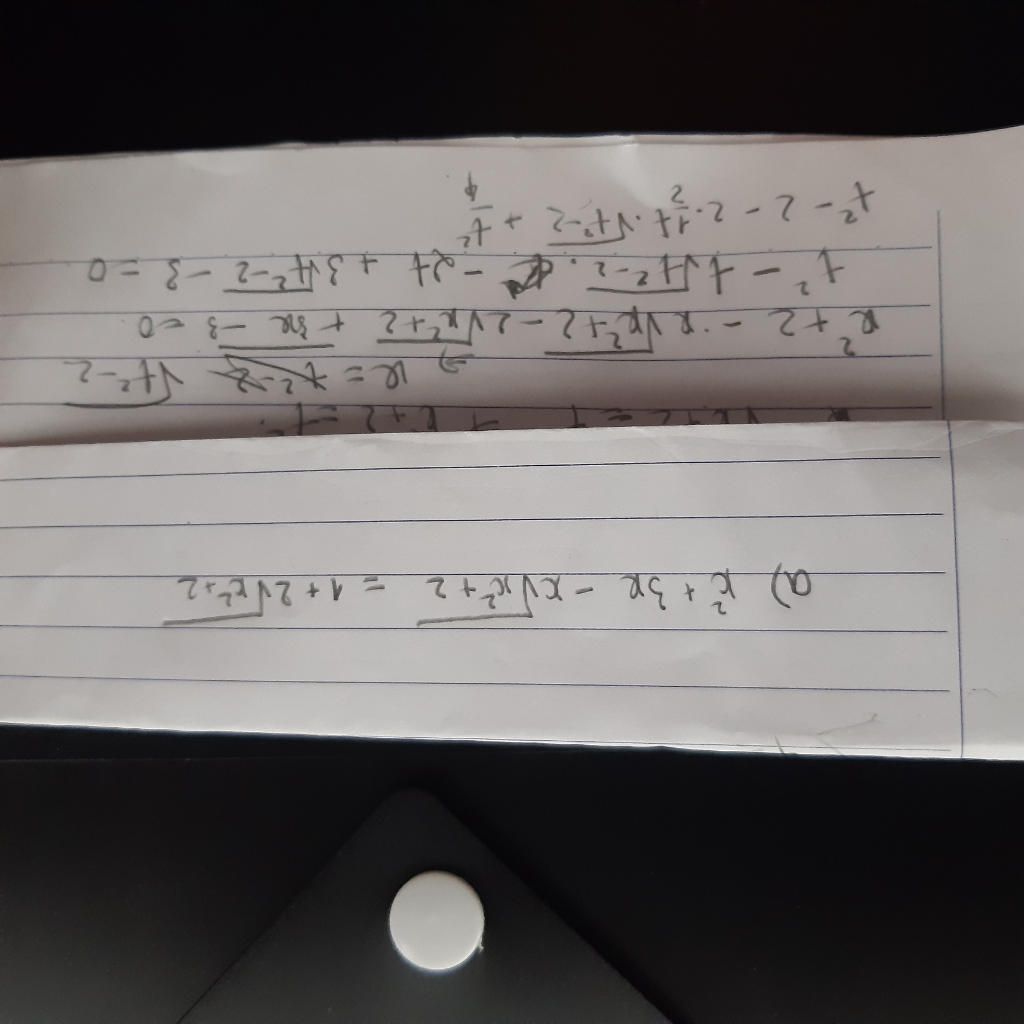 a) x² + 3x - x√x²+2 = 1 + 2√x²+2
=> x = √t²-2
x² + 2 - x√x²+2 - 2√x²+2 + 3x - 3 = 0
t² - t√t²-2 . - 2t + 3√t²-2 - 3 = 0
t² - 2 - 2.1/2t.√t²-2 + t²/4